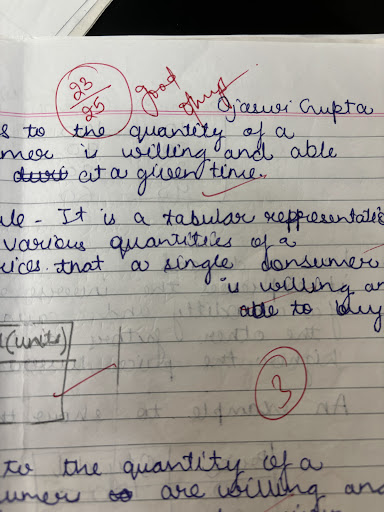 23/25 good
Ojaswi Gupta
s to the quantity of a
umer is willing and able
at a given time.
ule - It is a tabular reppresentatio
various quantities of a
rices that a single consumer
is willing an
able to buy
(units)
3
to the quantity of a
umer are willing and